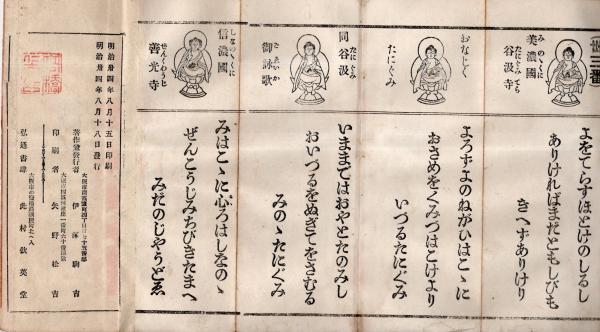 (卅三番)
美濃國
みのゝくに
谷汲寺
たにぐみでら
よをてらすほとけのしるし
ありければまだともしびも
きへずありけり
おなじく
たにぐみ
よろづよのねがひはこゝに
おさめをくみづはこけより
いづるたにぐみ
同谷汲
たにぐみ
御詠歌
ごゑいか
いままではおやとたのみし
おいづるをぬぎてをさむる
みのゝたにぐみ
信濃國
しなのゝくに
善光寺
ぜんくわうじ
みはこゝに心ろはしなのゝ
ぜんこうじみちびきたまへ
みだのじやうどゑ
明治卅四年八月十五日印刷
明治卅四年八月十八日發行
著作兼發行者
印刷者 矢野松吉
弘通書肆 此村欽英堂